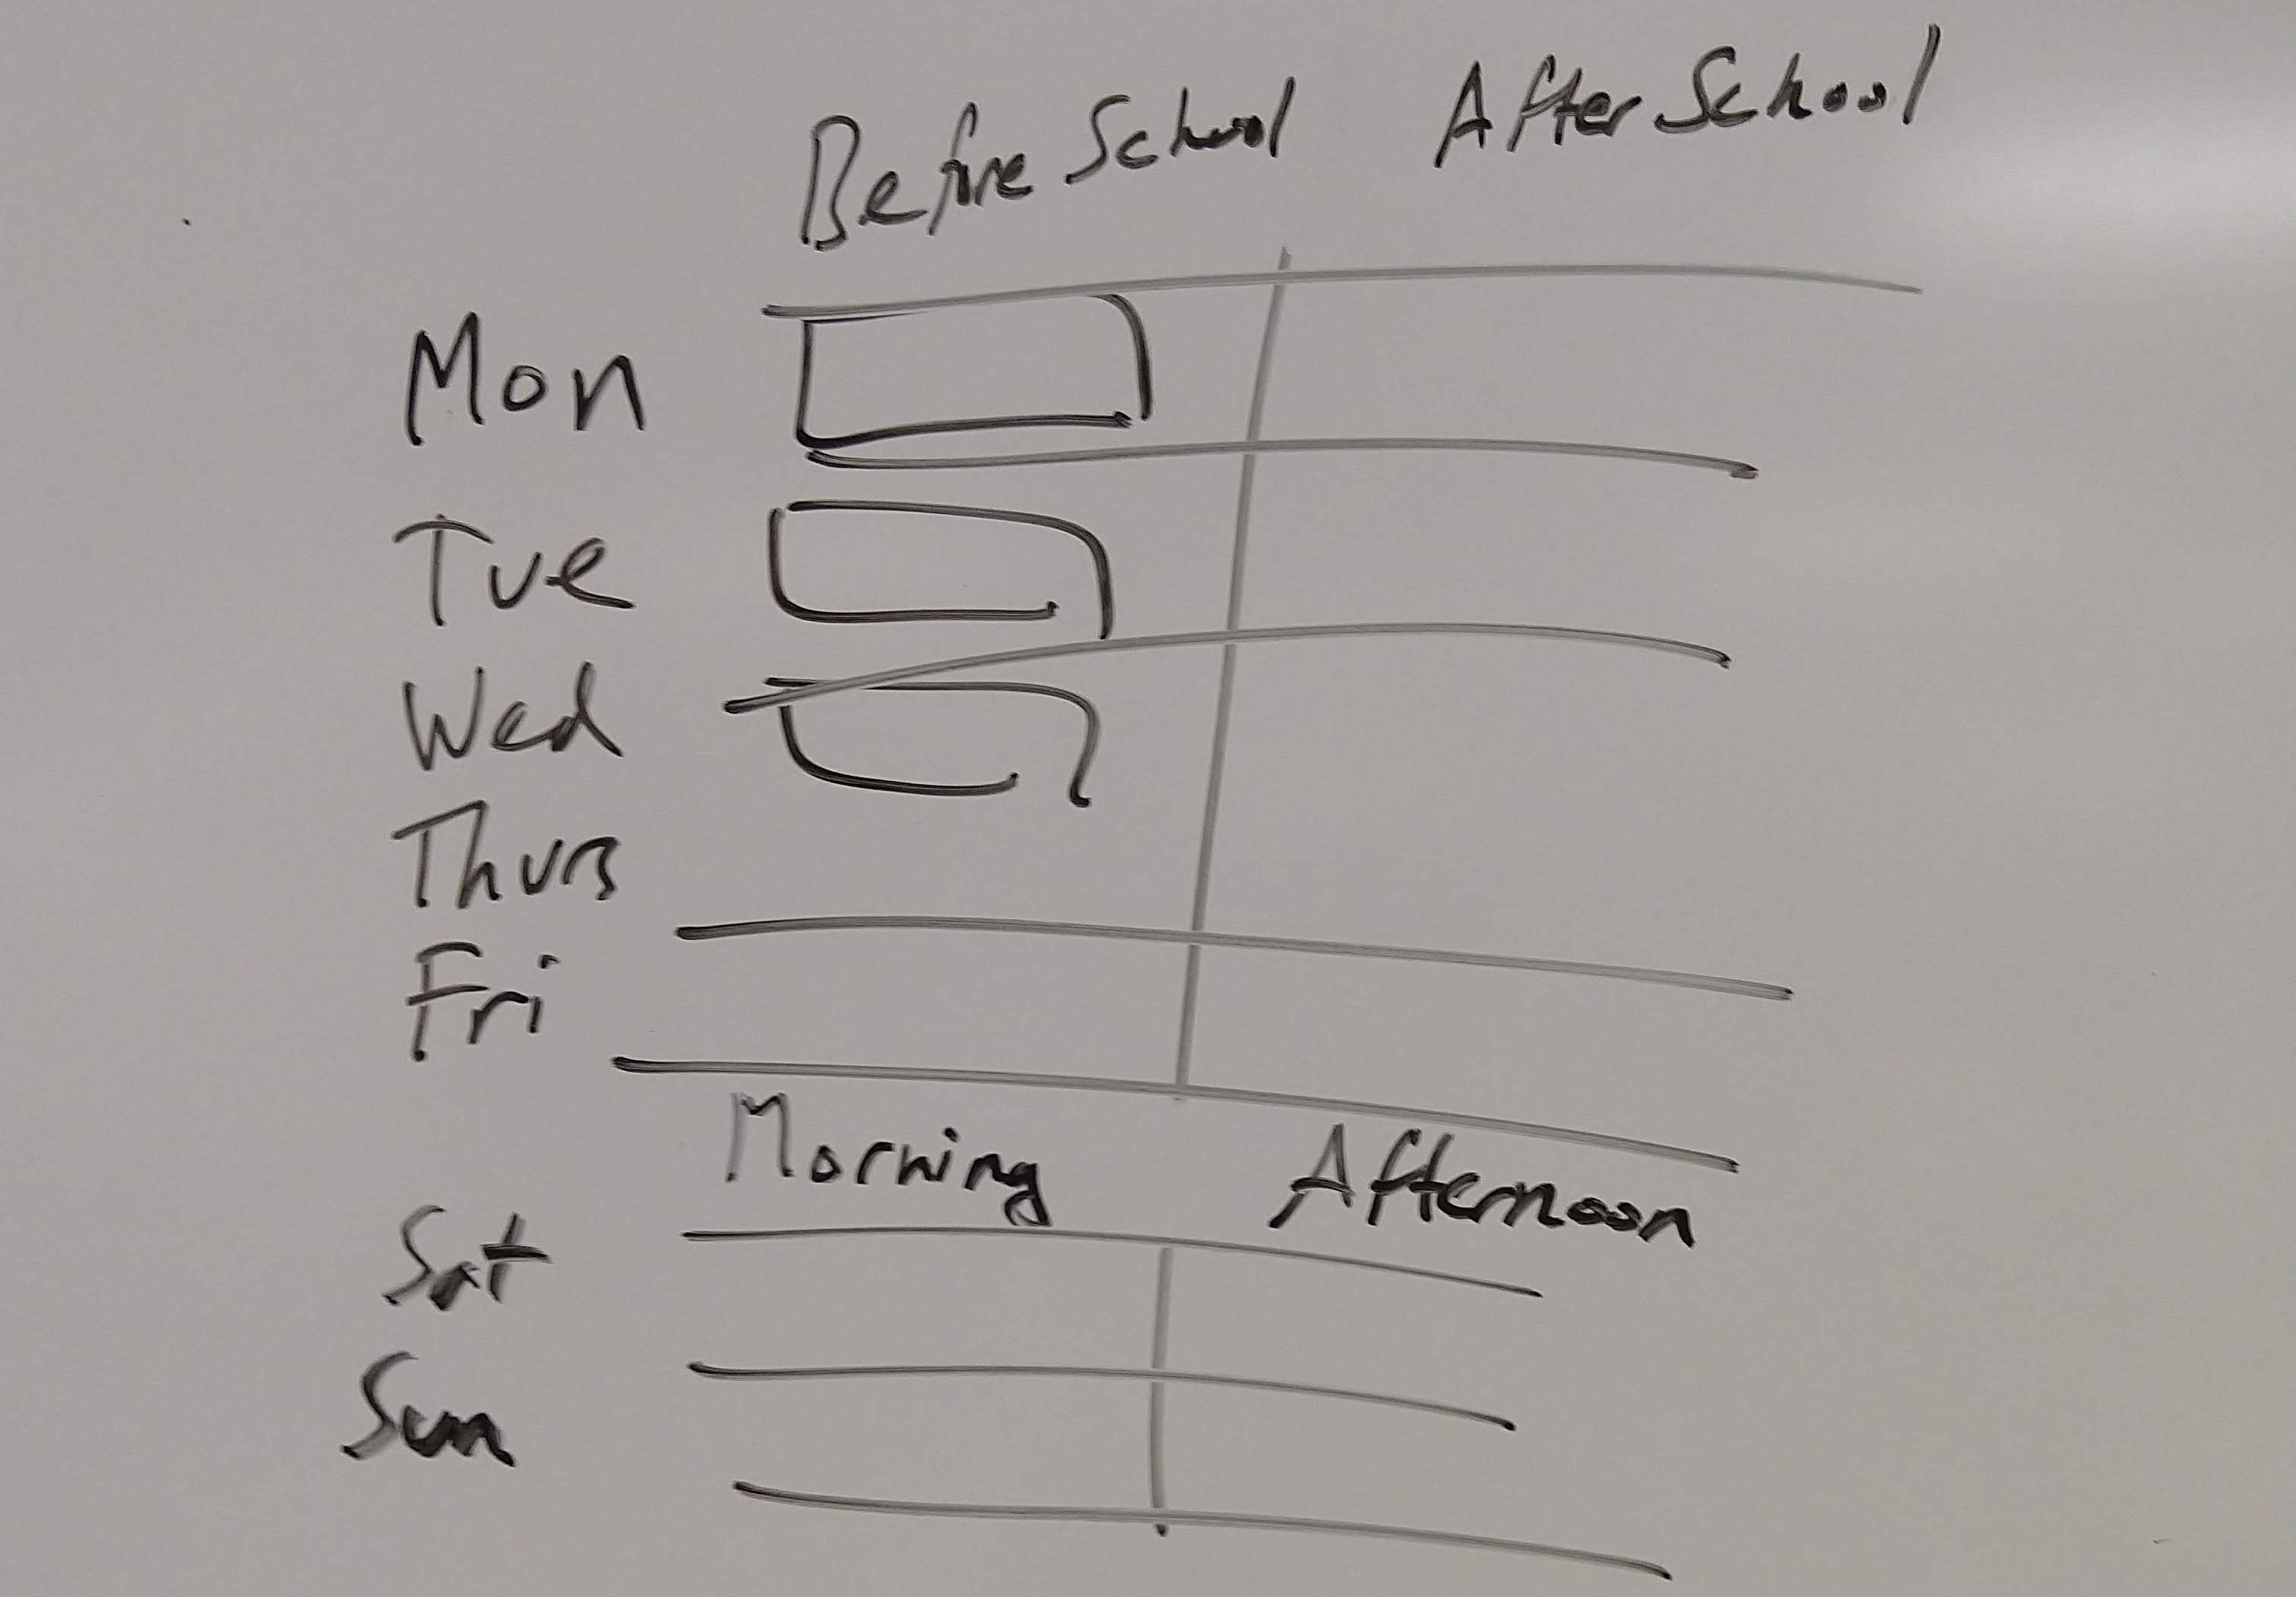 Before School After School
Mon
Tue
Wed
Thurs
Fri
Morning Afternoon
Sat
Sun